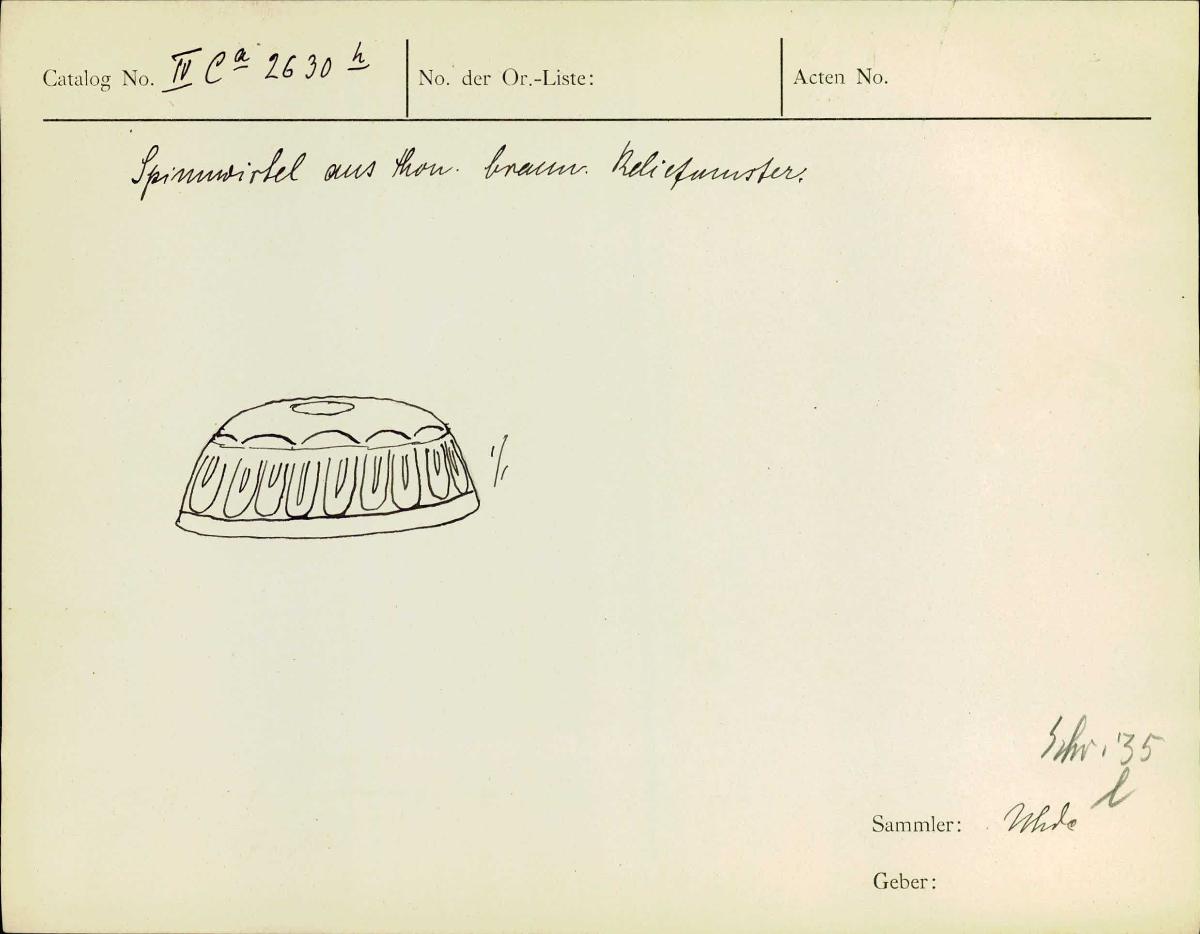 Catalog No. IV Ca 2630 h
No. der Or.-Liste:
Acten No.
Spinnwirtel aus Thon. braun. Reliefmuster.
1/1
Schr. 35
l
Sammler: Uhde
Geber: